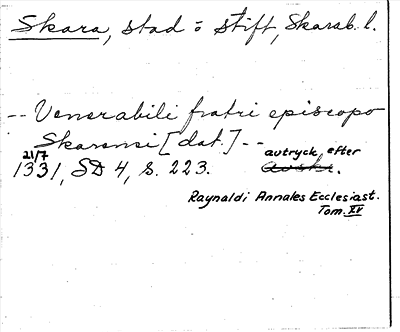 Skara, stad o stift, Skarab. l.
-- Venerabili fratri episcopo
Skarensi [dat.] --
21/7 avtryck efter
1331, SD 4, s. 223. Avskr.
Raynaldi Annales Ecclesiast.
Tom. XV